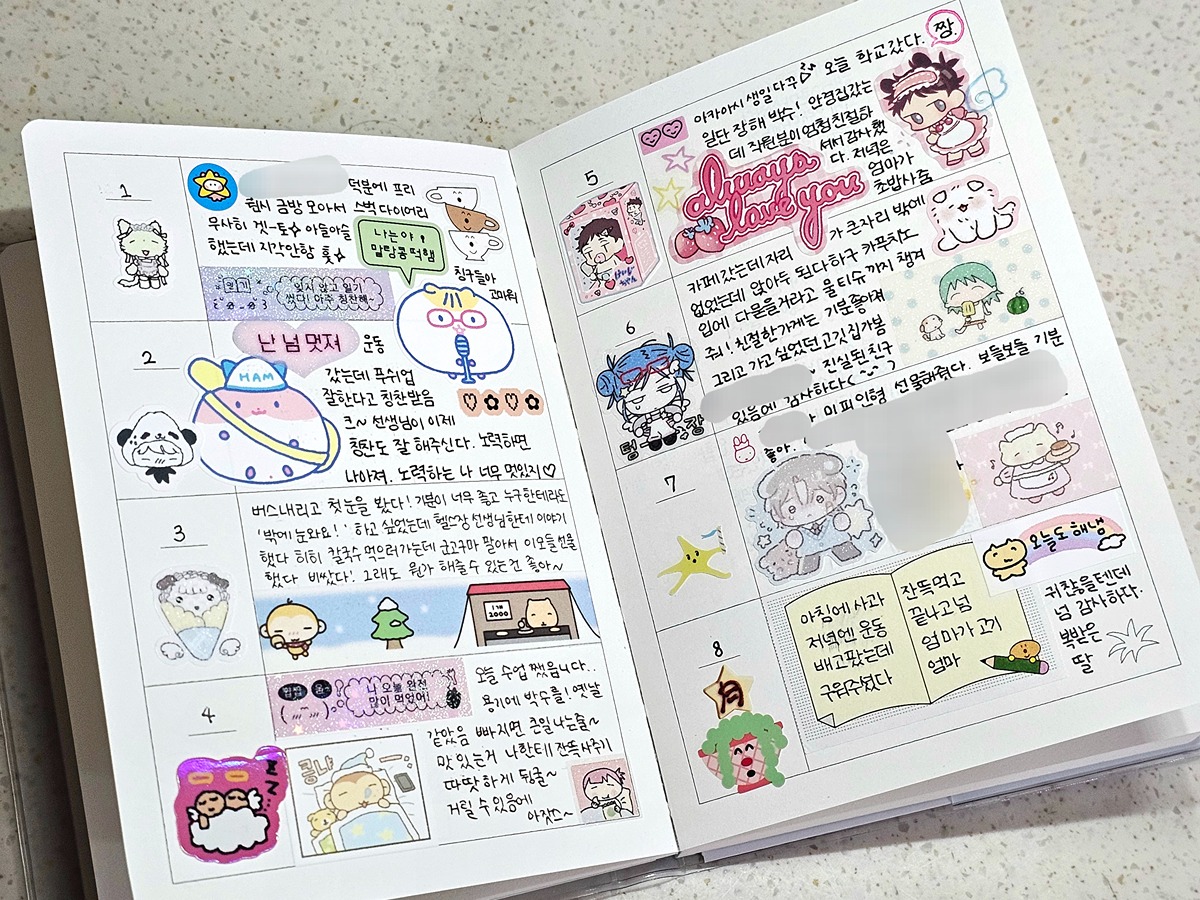 1
덕분에 프리
헙시 금방 모아서 스벅 다이어리
무사히 겟-토 아슬아슬
했는데 지각안함 훗
나는야!
말랑콩떡햄
칭구들아
고마워
일기
잊지 않고 일기
썼다! 아주 칭찬해~
2
난 넘 멋져
운동
HAM
갔는데 푸쉬업
잘한다고 칭찬받음
크~ 선생님이 이제
칭찬도 잘 해주신다. 노력하면
나아져. 노력하는 나 너무 멋있지♡
3
버스내리고 첫눈을 봤다! 기분이 너무 좋고 누구한테라도
'밖에 눈와요!' 하고 싶었는데 헬스장 선생님한테 이야기
했다 히히 칼국수 먹으러가는데 군고구마 팔아서 이모들 선물
했다 비쌌다! 그래도 뭔가 해줄수 있는건 좋아~
1개
2000
4
나 오늘 완전
많이 먹었어!
오늘 수업 쨌습니다..
용기에 박수를! 옛날
같았음 빠지면 큰일나는줄~
맛있는거 나한테 잔뜩 사주기
따땃하게 뒹굴~
거릴 수 있음에
아자쓰~
쿵냐
z z z
5
아카아시 생일다꾸
오늘 학교갔다.
짱
일단 장해 박수! 안경집갔는
데 직원분이 엄청친절하
셔서 감사했
다. 저녁은
엄마가
초밥사줌
always
love you
6
카페갔는데 자리
가 큰자리 밖에
없었는데 앉아두 된다하구 카푸치노
입에 다묻을거라고 물티슈까지 챙겨
주심! 친절한가게는 기분좋아져
그리고 가고싶었던 고깃집가봄
진실된친구
있음에 감사하다
텅 장
7
이 피인형 선물해줬다. 보들보들 기분
좋아.
오늘도 해냄
8
아침에 사과
저녁엔 운동
배고팠는데
구워주셨다
잔뜩먹고
끝나고넘
엄마가 고기
엄마
귀찮을텐데
넘 감사하다.
복받은
딸
月